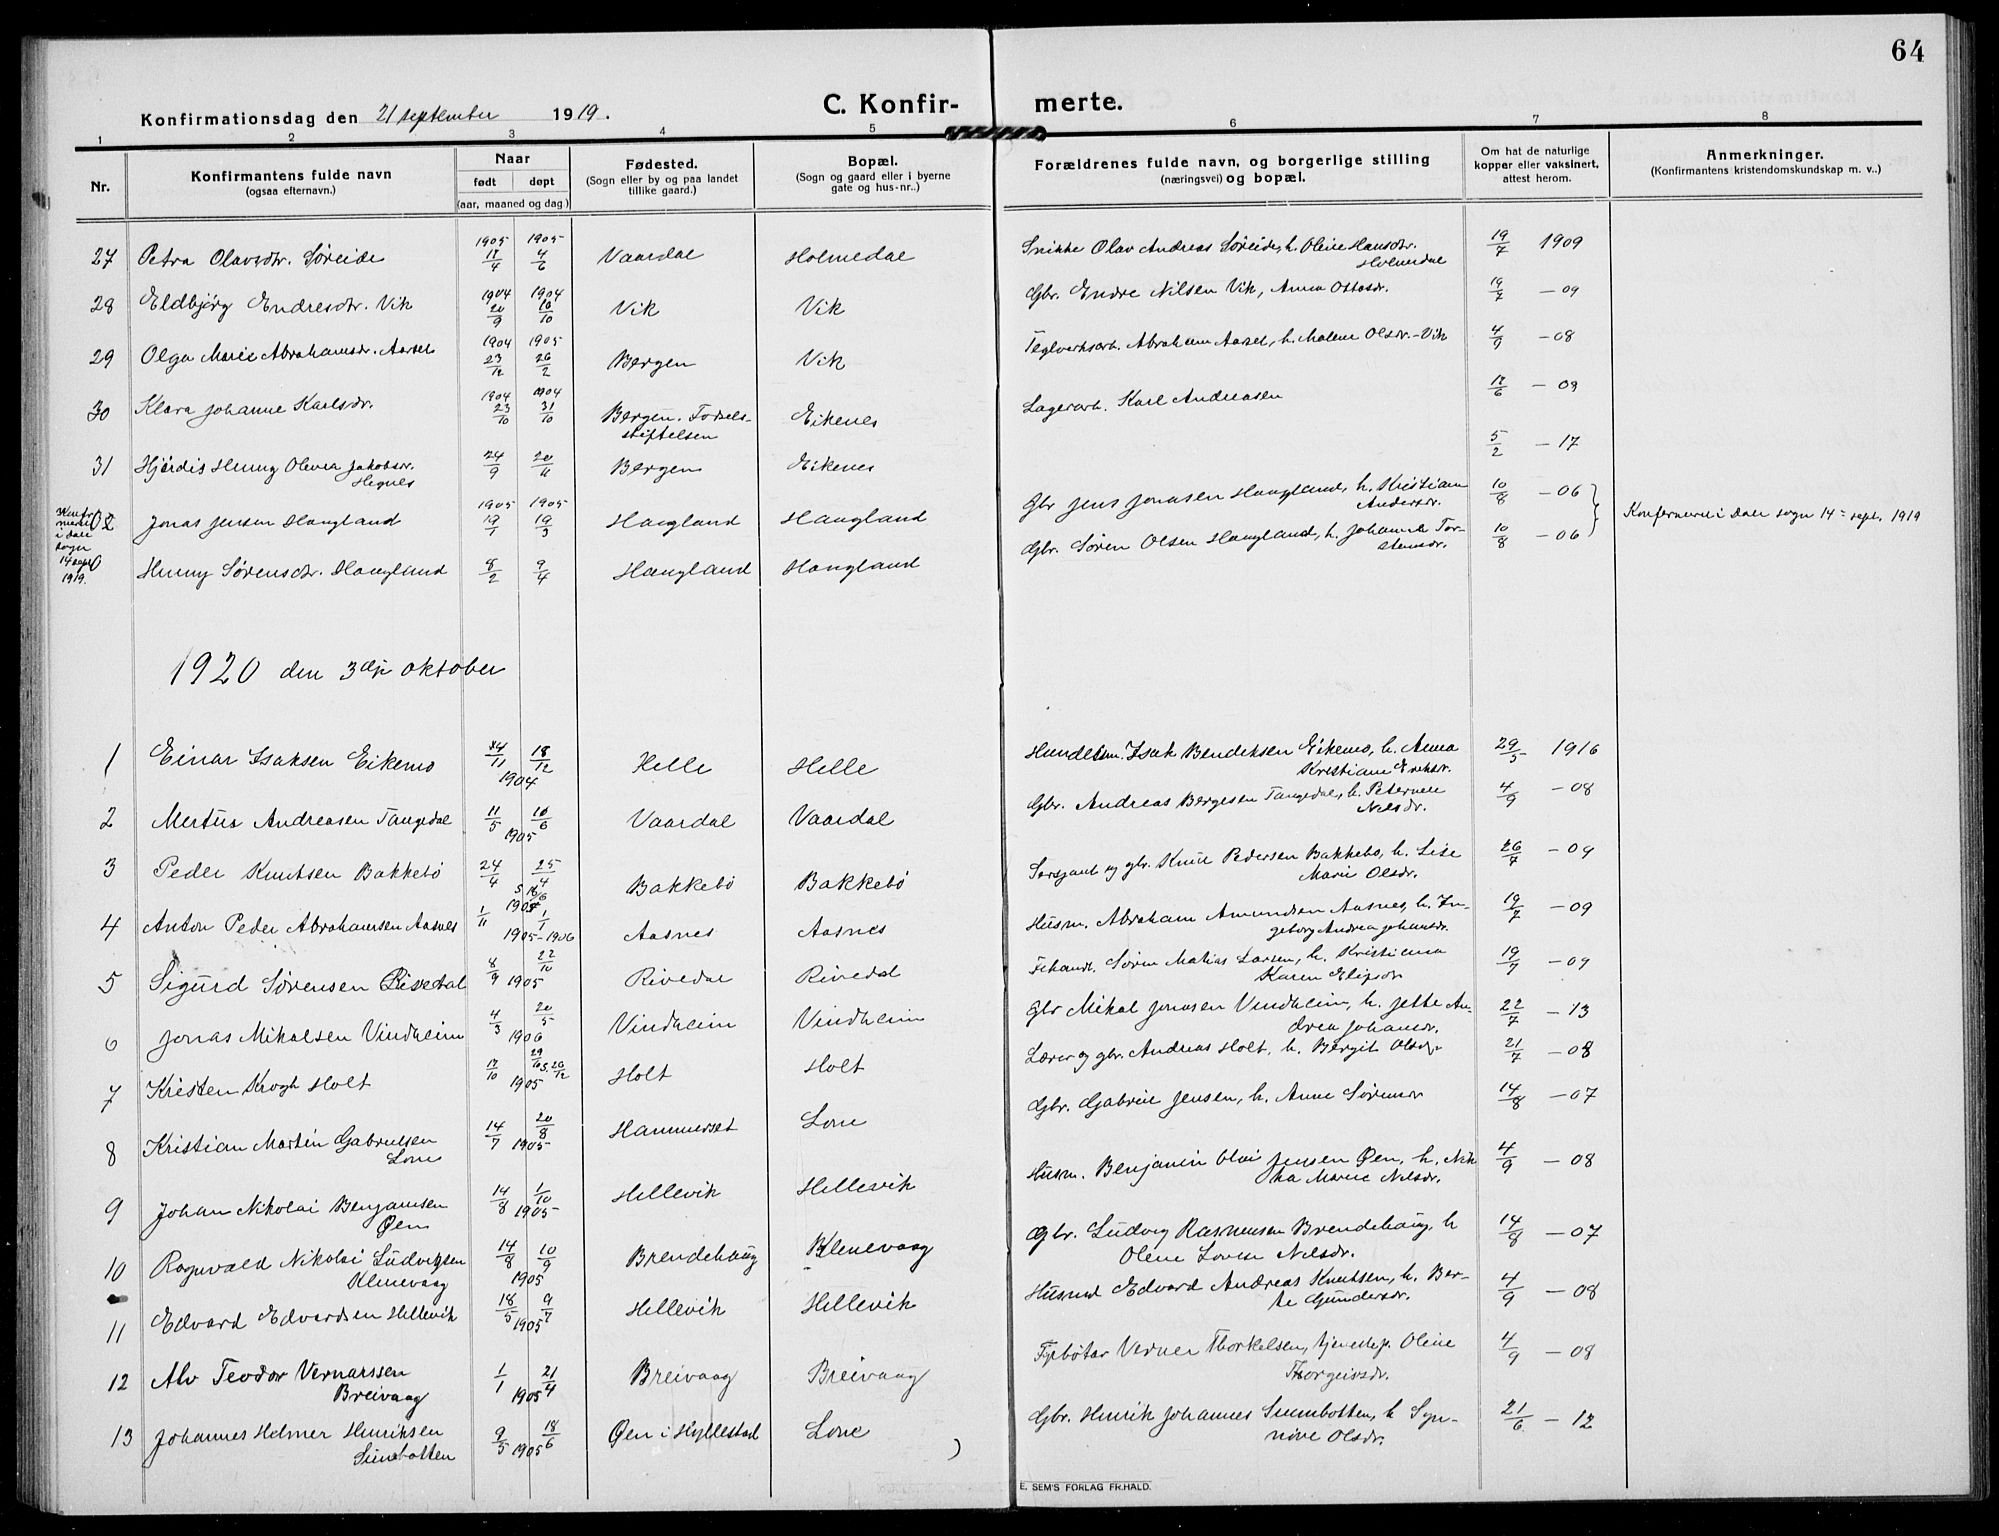 64
Konfirmationsdag den 21 september 1919.
C. Konfir-merte.
1 2 3 4 5 6 7 8
Nr.
Konfirmantens fulde navn
(ogsaa efternavn.)
Naar
født døpt
(aar, maaned og dag)
Fødested.
(Sogn eller by og paa landet
tillike gaard.)
Bopæl.
(Sogn og gaard eller i byerne
gate og hus-nr..)
Forældrenes fulde navn, og borgerlige stilling
(næringsvei) og bopæl.
Om hat de naturlige
kopper eller vaksinert,
attest herom.
Anmerkninger.
(Konfirmantens kristendomskundskap m. v..)
27 Petra Olavsdtr. Søreide 1905 17/4 1905 4/6 Vaardal Holmedal Snikke Olav Andreas Søreide, h. Oline Hansdtr. Holmedal 19/7 1909
28 Eldbjørg Endresdtr. Vik 1904 20/9 1904 10/10 Vik Vik Gbr. Endre Nilsen Vik, Anna Ottosdr. 19/7 - 09
29 Olga Marie Abrahamsdr. Aarset 1904 23/12 1905 26/2 Bergen Vik Teglverksarb. Abraham Aarset, h. Malene Olsdr. - Vik 4/9 - 08
30 Klara Johanne Karlsdr. 1904 23/10 1904 31/10 Bergen. Fødsels-
stiftelsen Eikenes Lagerarb. Karl Andreasen 17/6 - 09
31 Hjørdis Henny Olivia Jakobsdr.
Hegnes 24/9 20/11 Bergen Eikenes 5/2 - 17
Konfir
meret
i Dale
sogn
14 sept
1919.
Jonas Jensen Haugland 1905 19/1 1905 19/3 Haugland Haugland Gbr Jens Jonassen Haugland, h. Kristiane
Andersdr. 10/8 - 06 Konfirmeret i Dale sogn 14= sept. 1919
Henny Sørensdtr. Haugland 8/2 9/4 Haugland Haugland Gbr. Søren Olsen Haugland, h. Johanne Tor-
stensdr. 10/8 - 06
1920 den 3dje oktober
1 Einar Isaksen Eikemo 14/11 18/12 1904 Helle Helle Handelsm. Isak Bendiksen Eikemo, h. Anna
Kristiane Eriksdr. 29/5 1916
2 Mertus Andreasen Tangedal 11/5 10/6 1905 Vaardal Vaardal Gbr. Andreas Bergesen Tangedal, h. Peternele
Nilsdr. 4/9 - 08
3 Peder Knutsen Bakkebø 24/4 25/4 Bakkebø Bakkebø Sersjant og gbr. Knut Pedersen Bakkebø, h. Lise
Marie Olsdr. 26/7 - 09
4 Anton Peder Abrahamsen Aasnes 1/11 1/1 1905 - 1906 Aasnes Aasnes Husm. Abraham Amundsen Aasnes, h. In-
geborg Andrea Johansdr. 19/7 - 09
5 Sigurd Sørensen Rivedal 8/9 22/10 1905 Rivedal Rivedal Fehandl. Søren Matias Larsen, h. Kristiana
Karen 19/7 - 09
6 Jonas Mikalsen Vindheim 4/3 20/5 1906 Vindheim Vindheim Gbr Mikal Jonassen Vindheim, h. Jette An-
drea Johansdr. 22/7 - 13
7 Kristen Krogh Holt 17/10 29/10 s. 26/12 1905 Holt Holt Lærer og gbr. Andreas Holt, h. Bergit Olsdr. 21/7 - 08
8 Kristian Martin Gabrielsen
Lone 14/7 20/8 1905 Hammerset Lone Gbr. Gabriel Jensen, h. Anne Sørensdr 14/8 - 07
9 Johan Nikolai Benjamsen
Øen 14/8 1/10 1905 Hellevik Hellevik Husm. Benjamin Jensen Øen, h. Nik
ka Marie Nilsdr. 4/9 - 08
10 Ragnvald Nikolai Ludvigsen
Klenevaag 14/8 10/9 1905 Brendehaug Klenevaag Gbr. Ludvig Rasmussen Brendehaug, h
Oline Lovise Nilsdr. 14/8 - 07
11 Edvard Edvardsen Hellevik 18/5 9/7 1905 Hellevik Hellevik Husmd Edvard Andreas Knutsen, h. Ber-
te Gundersdr. 4/9 - 08
12 Alv Teodor Vernarssen
Breivaag 1/1 21/4 1905 Breivaag Breivaag Fyrbøter Verner Thorkelsen, tjenestep. Oline
Thorgeirsdr. 4/9 - 08
13 Johannes Helmer Henriksen
Sunnbotten 9/5 18/6 1905 Øen i Hyllestad Lone Gbr. Henrik Johannes Sunnbotten, h Syn-
nøve Olsdr. 21/6 - 12
E. SEM'S FORLAG FR.HALD.